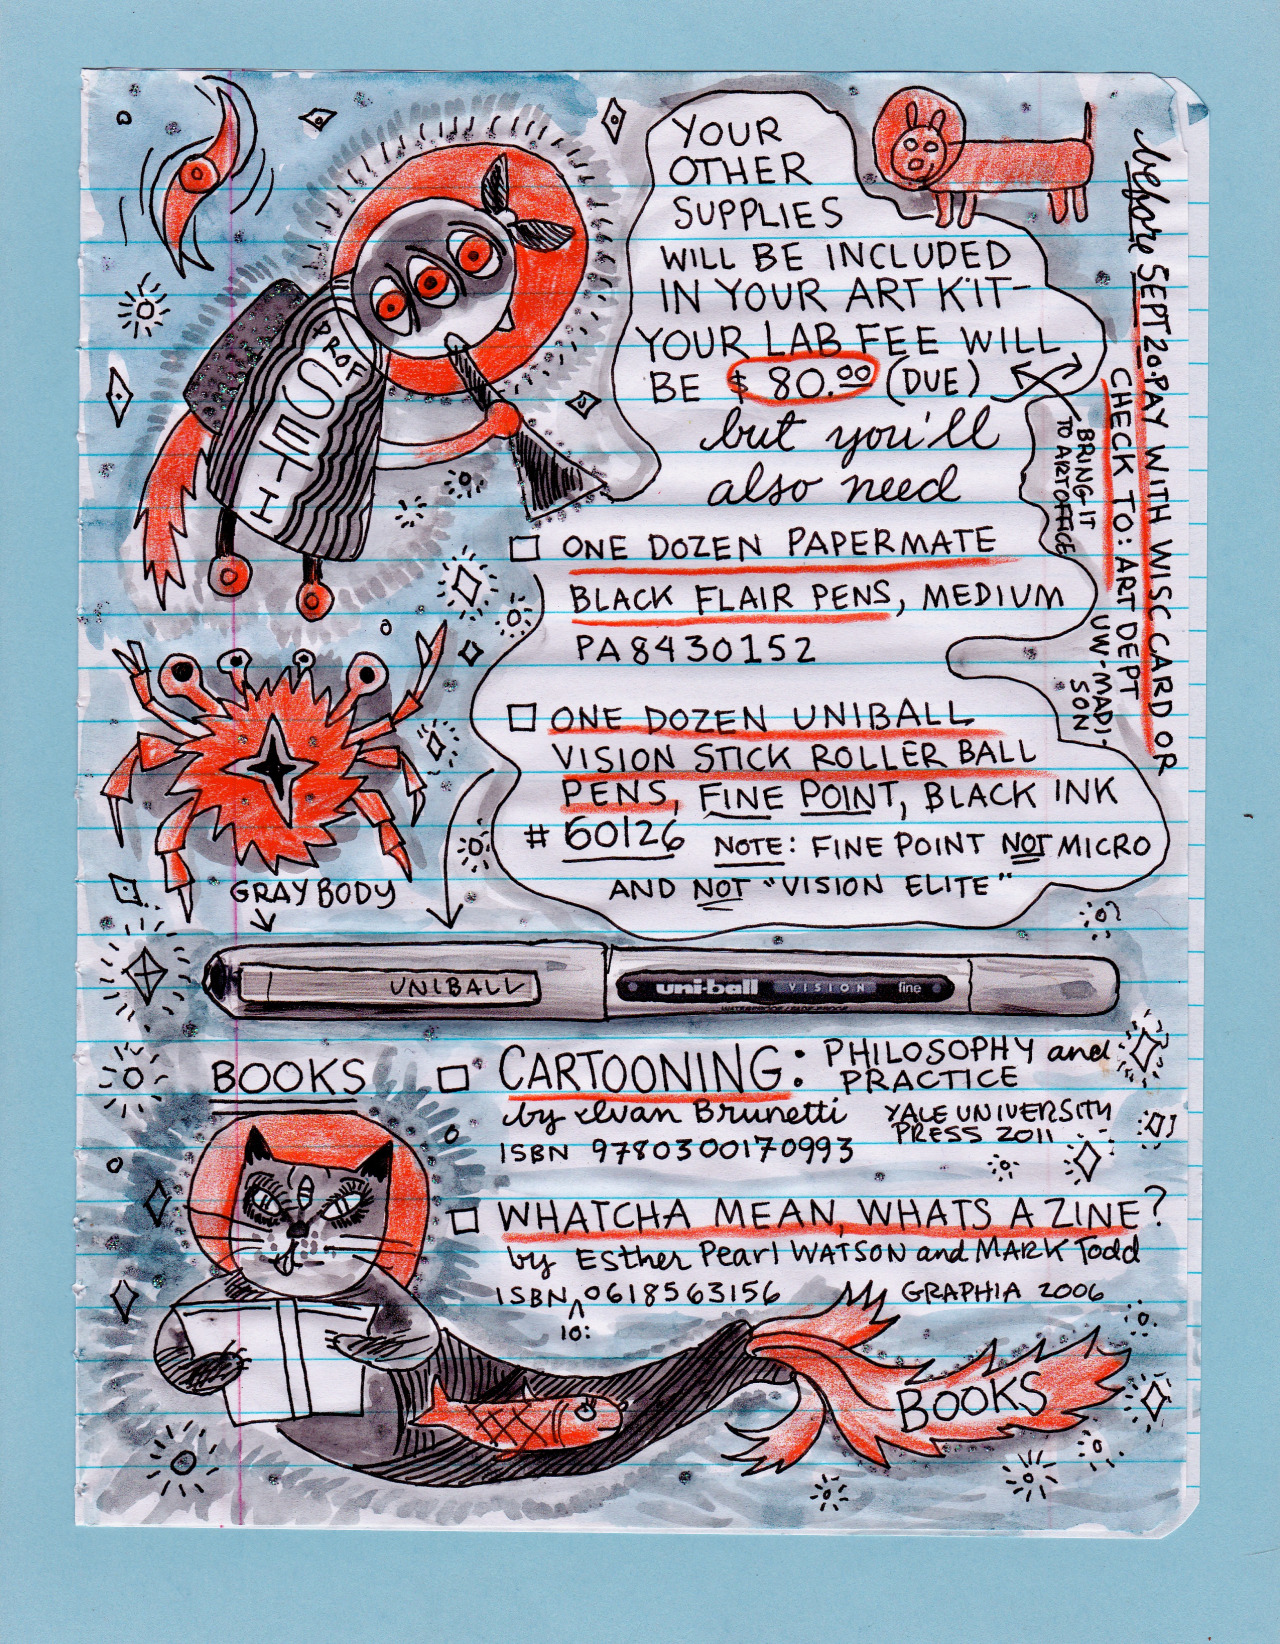 YOUR
OTHER
SUPPLIES
WILL BE INCLUDED
IN YOUR ART KIT-
YOUR LAB FEE WILL
BE $80.00 (DUE)
but you'll
also need
before SEPT 20. PAY WITH WISC CARD OR
CHECK TO: ART DEPT
UW-MADI-
SON
BRING IT
TO ART OFFICE
PROF
SETI
ONE DOZEN PAPERMATE
BLACK FLAIR PENS, MEDIUM
PA8430152
ONE DOZEN UNIBALL
VISION STICK ROLLER BALL
PENS, FINE POINT, BLACK INK
# 60126 NOTE: FINE POINT NOT MICRO
AND NOT "VISION ELITE"
GRAY BODY
UNIBALL
uni-ball VISION fine
BOOKS
CARTOONING: PHILOSOPHY and
PRACTICE
by Ivan Brunetti YALE UNIVERSITY
PRESS 2011
ISBN 9780300170993
WHATCHA MEAN, WHATS A ZINE?
by Esther Pearl WATSON and MARK Todd
ISBN 10: 0618563156 GRAPHIA 2006
BOOKS